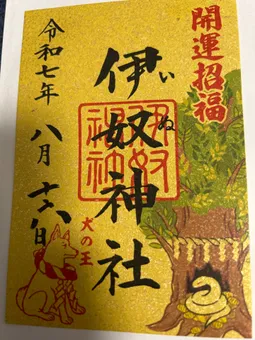 開運招福
伊奴神社
いぬ
犬の王
令和七年
八月
十六日